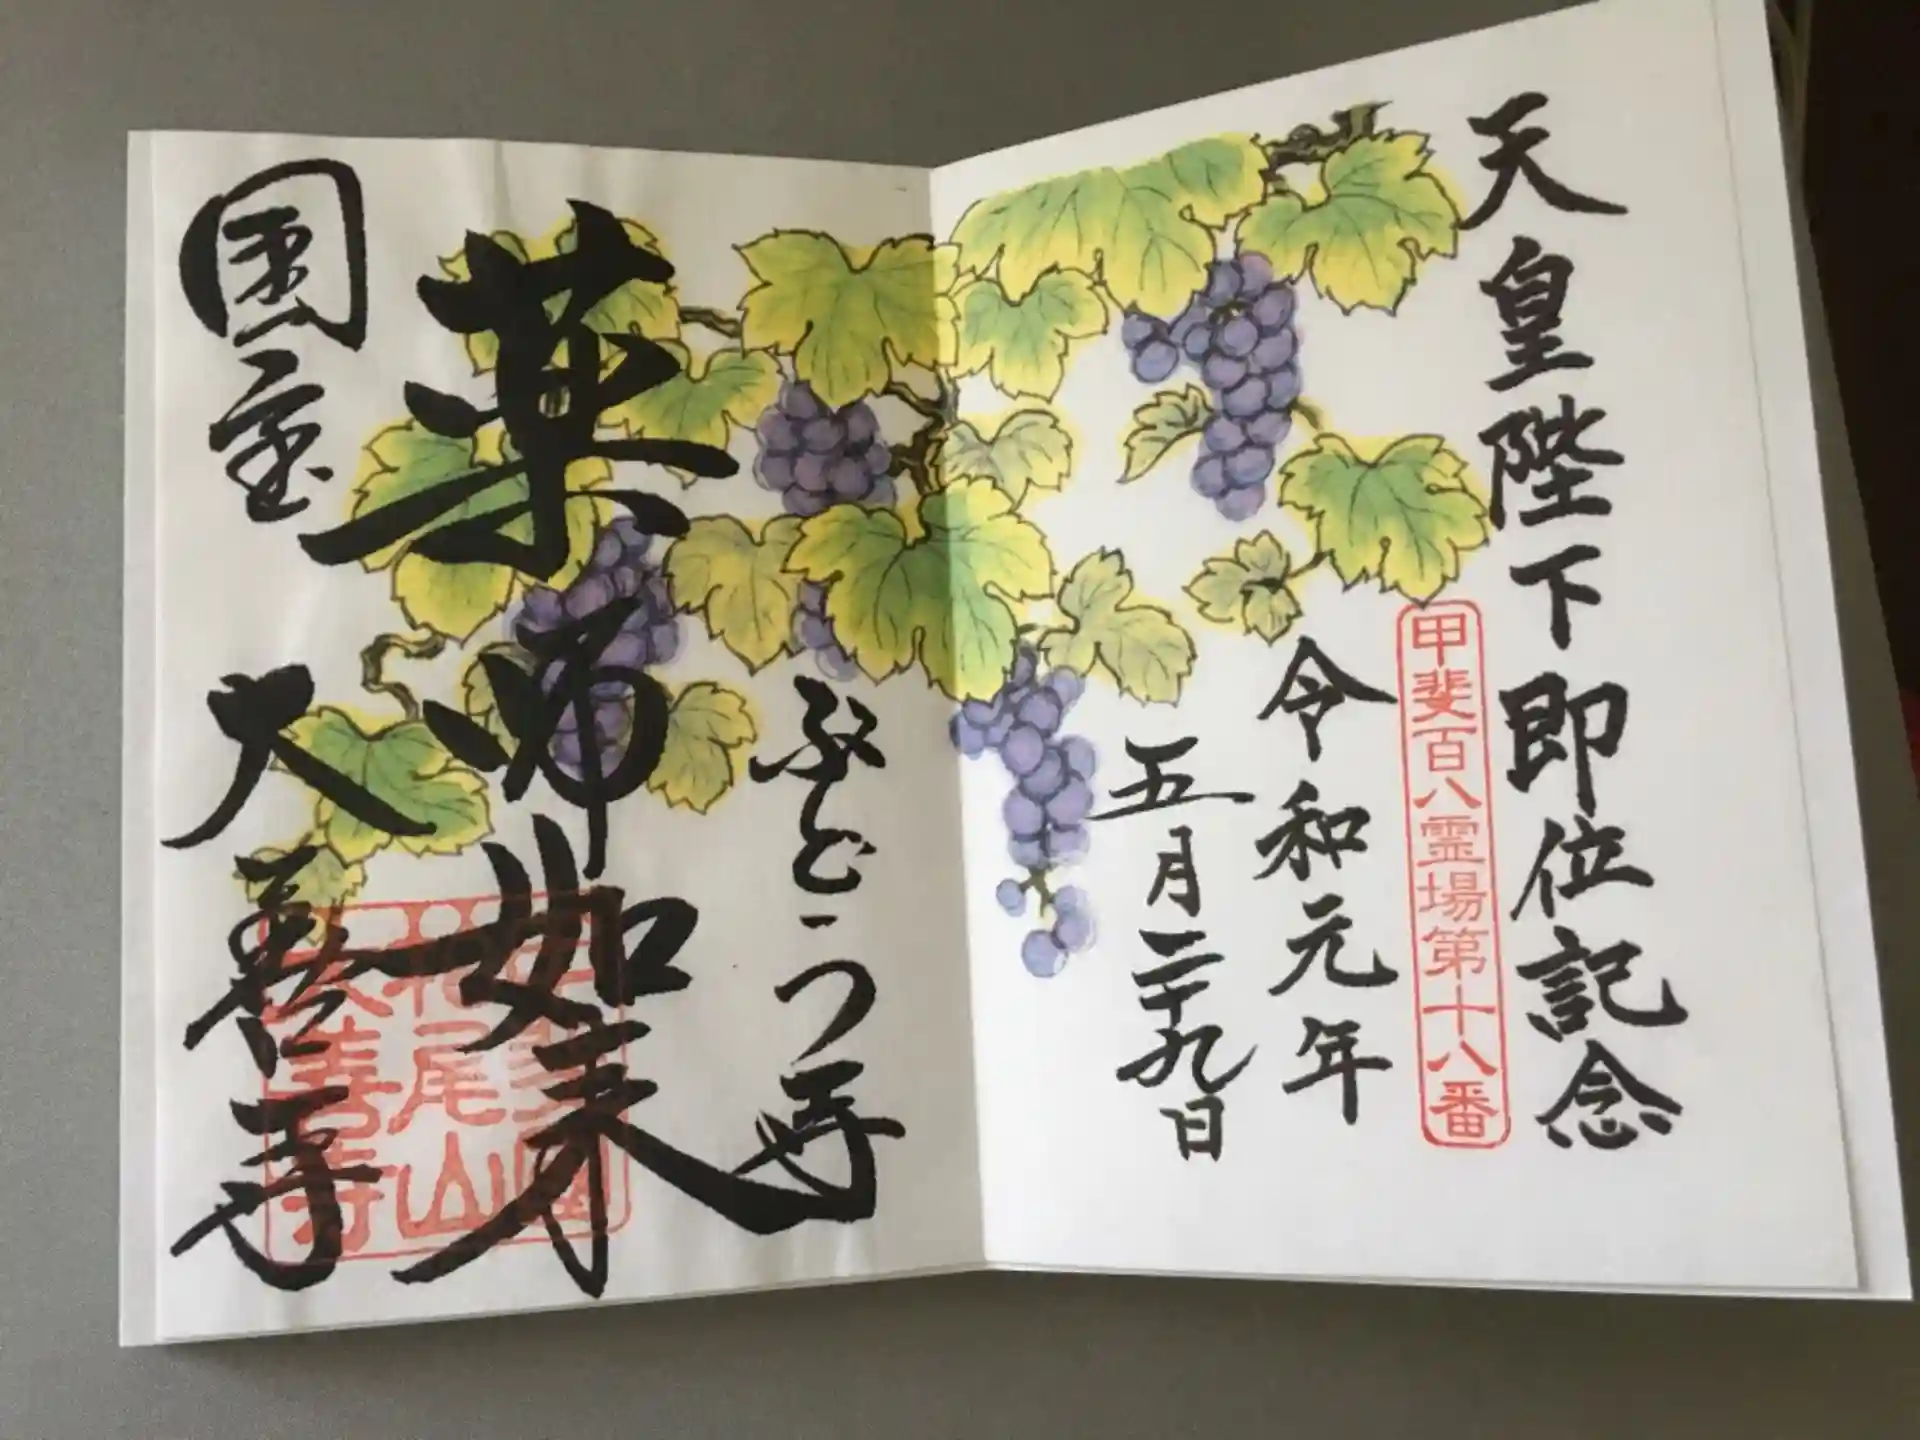 天皇陛下即位記念
甲斐百八霊場第十八番
令和元年
五月二十九日
ぶどう寺
薬師如来
国宝
大善寺
柏尾山
大善寺